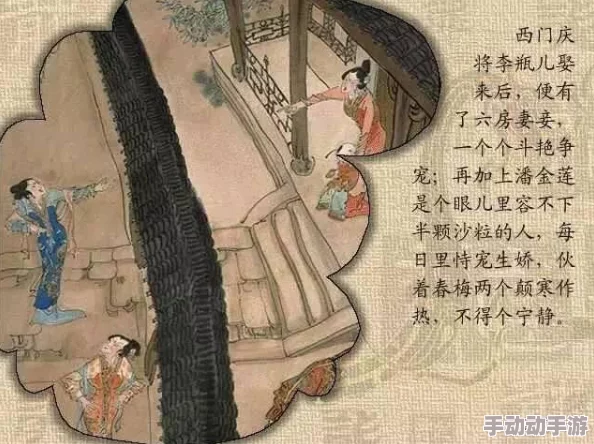 西门庆
将李瓶儿娶
来后，便有
了六房妻妾，
一个个斗艳争
宠；再加上潘金莲
是个眼儿里容不下
半颗沙粒的人，每
日里恃宠生娇，伙
着春梅两个颠寒作
热，不得个宁静。
手动动手游